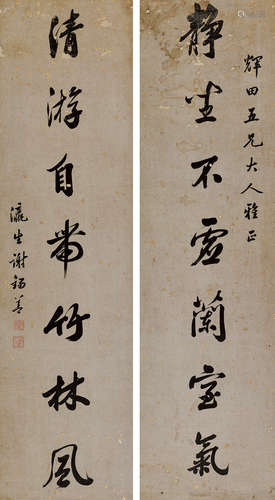 輝田五兄大人雅正
靜坐不虛蘭室氣
清游自帶竹林風
瀛生謝錫善